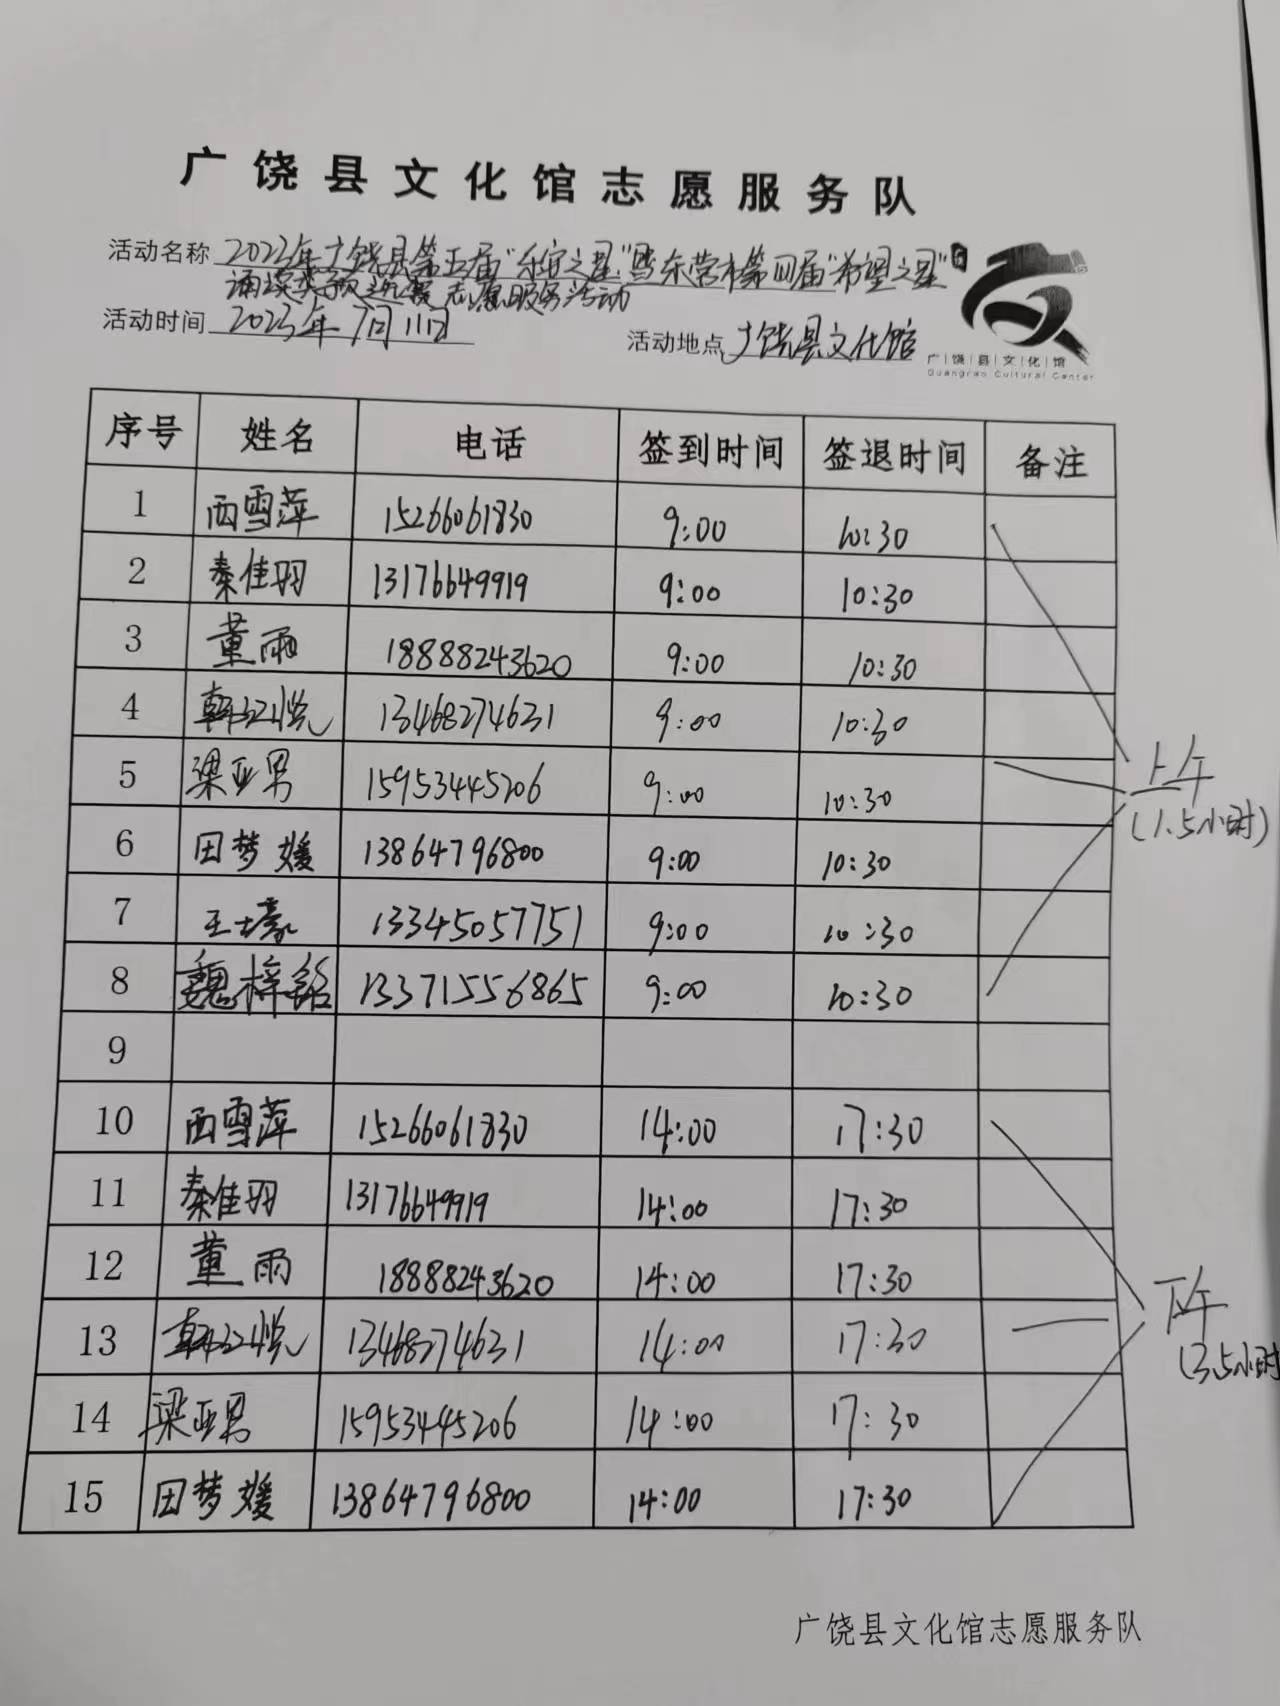 广饶县文化馆志愿服务队
活动名称 2023年广饶县第五届"乐安之星"暨东营市第四届"希望之星"
诵读类预选赛志愿服务活动
活动时间 2023年7月11日 活动地点 广饶县文化馆
广饶县文化馆
Guangrao Cultural Center
序号 姓名 电话 签到时间 签退时间 备注
1 西雪萍 15266061830 9:00 10:30
2 秦佳羽 13176649919 9:00 10:30
3 董雨 18888243620 9:00 10:30
4 韩江悦 13468274631 9:00 10:30
5 梁亚男 15953445206 9:00 10:30
上午
(1.5小时)
6 田梦媛 13864796800 9:00 10:30
7 王士豪 13345057751 9:00 10:30
8 魏梓铭 13371556865 9:00 10:30
9
10 西雪萍 15266061830 14:00 17:30
11 秦佳羽 13176649919 14:00 17:30
12 董雨 18888243620 14:00 17:30
下午
(3.5小时
13 韩江悦 13468274631 14:00 17:30
14 梁亚男 15953445206 14:00 17:30
15 田梦媛 13864796800 14:00 17:30
广饶县文化馆志愿服务队